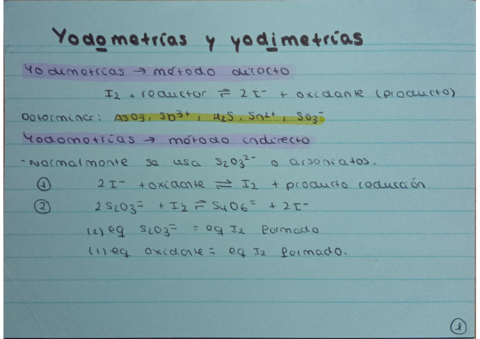 Yodometrías y yodimetrías
Yodimetrías → método directo
I2 + reductor ⇌ 2I⁻ + oxidante (producto)
Determina: AsO3, Sb³⁺, H2S, Sn²⁺, SO3⁼
Yodometrías → método indirecto
- Normalmente se usa S2O3²⁻ o arseniatos.
① 2I⁻ + oxidante ⇌ I2 + producto reducción
② 2S2O3⁼ + I2 ⇌ S4O6⁼ + 2I⁻
(2) eq S2O3⁼ = eq I2 formado
(1) eq oxidante = eq I2 formado.
1